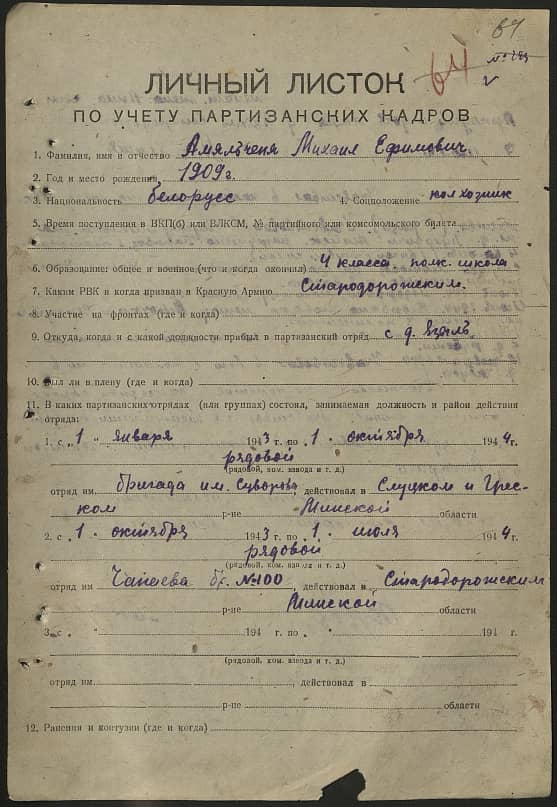 64
№ 175
ЛИЧНЫЙ ЛИСТОК
ПО УЧЕТУ ПАРТИЗАНСКИХ КАДРОВ
1. Фамилия, имя и отчество Амяльченя Михаил Ефимович
2. Год и место рождения 1909г.
3. Национальность белорусс 4. Соцположение колхозник
5. Время поступления в ВКП(б) или ВЛКСМ, № партийного или комсомольского билета
6. Образование: общее и военное (что и когда окончил) 4 класса полк. школа
7. Каким РВК и когда призван в Красную Армию Стародорожским.
8. Участие на фронтах (где и когда)
9. Откуда, когда и с какой должности прибыл в партизанский отряд с д.
10. Был ли в плену (где и когда)
11. В каких партизанских отрядах (или группах) состоял, занимаемая должность и район действия
отряда:
1. с „1" января 1943 г. по „1" октября 1944 г.
рядовой
(рядовой, ком. взвода и т. д.)
отряд им. бригада им. Суворова, действовал в Слуцком и Грес-
ком р-не Минской области
2. с „1" октября 1943 г. по „1" июля 1944 г.
рядовой
(рядовой, ком. взвода и т. д.)
отряд им. Чапаева бр. №100, действовал в Стародорожским
р-не Минской области
3. с „ " 194 г. по „ " 194 г.
(рядовой, ком. взвода и т. д.)
отряд им. , действовал в
р-не области
12. Ранения и контузии (где и когда)